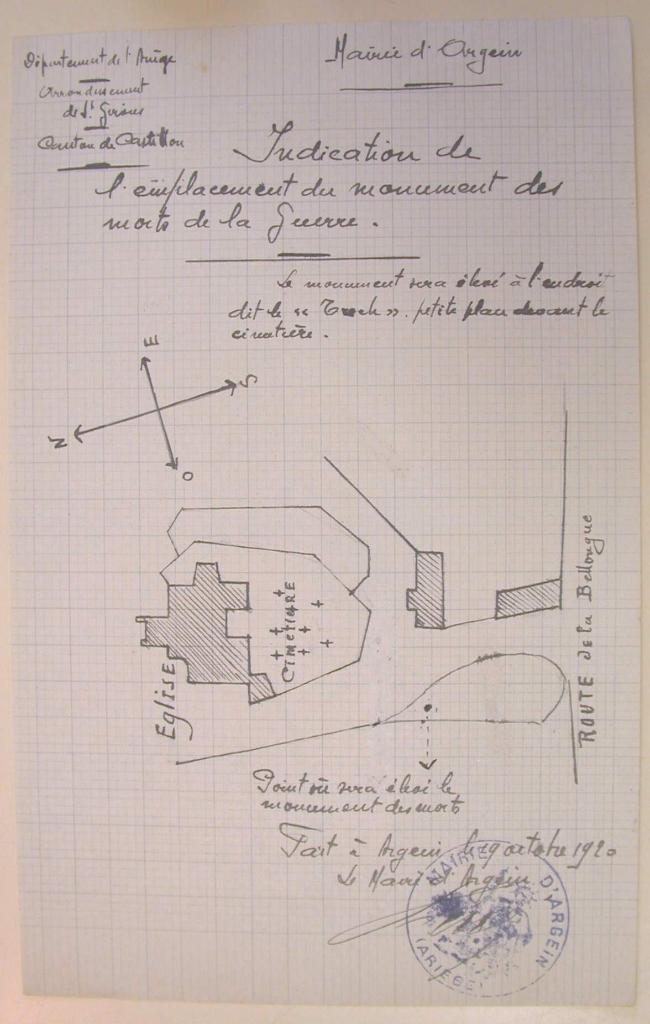 Département de l'Ariège
Arrondissement
de St. Girons
Canton de Castillon
Mairie d'Argein
Indication de
l'emplacement du monument des
morts de la Guerre.
Le monument sera élevé à l'endroit
dit le « », petite plan devant le
cimetière.
E
S
N
O
CIMETIERE
Eglise
ROUTE de la Bellongue
Point où sera élevé le
monument des morts
Fait à Argein le 19 octobre 1920
Le Maire d'Argein
MAIRIE D'ARGEIN
(ARIEGE)